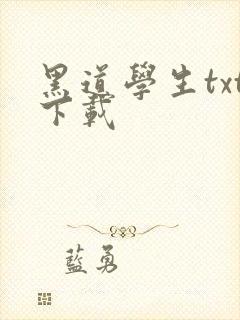 黑道學生txt
下載
藍勇